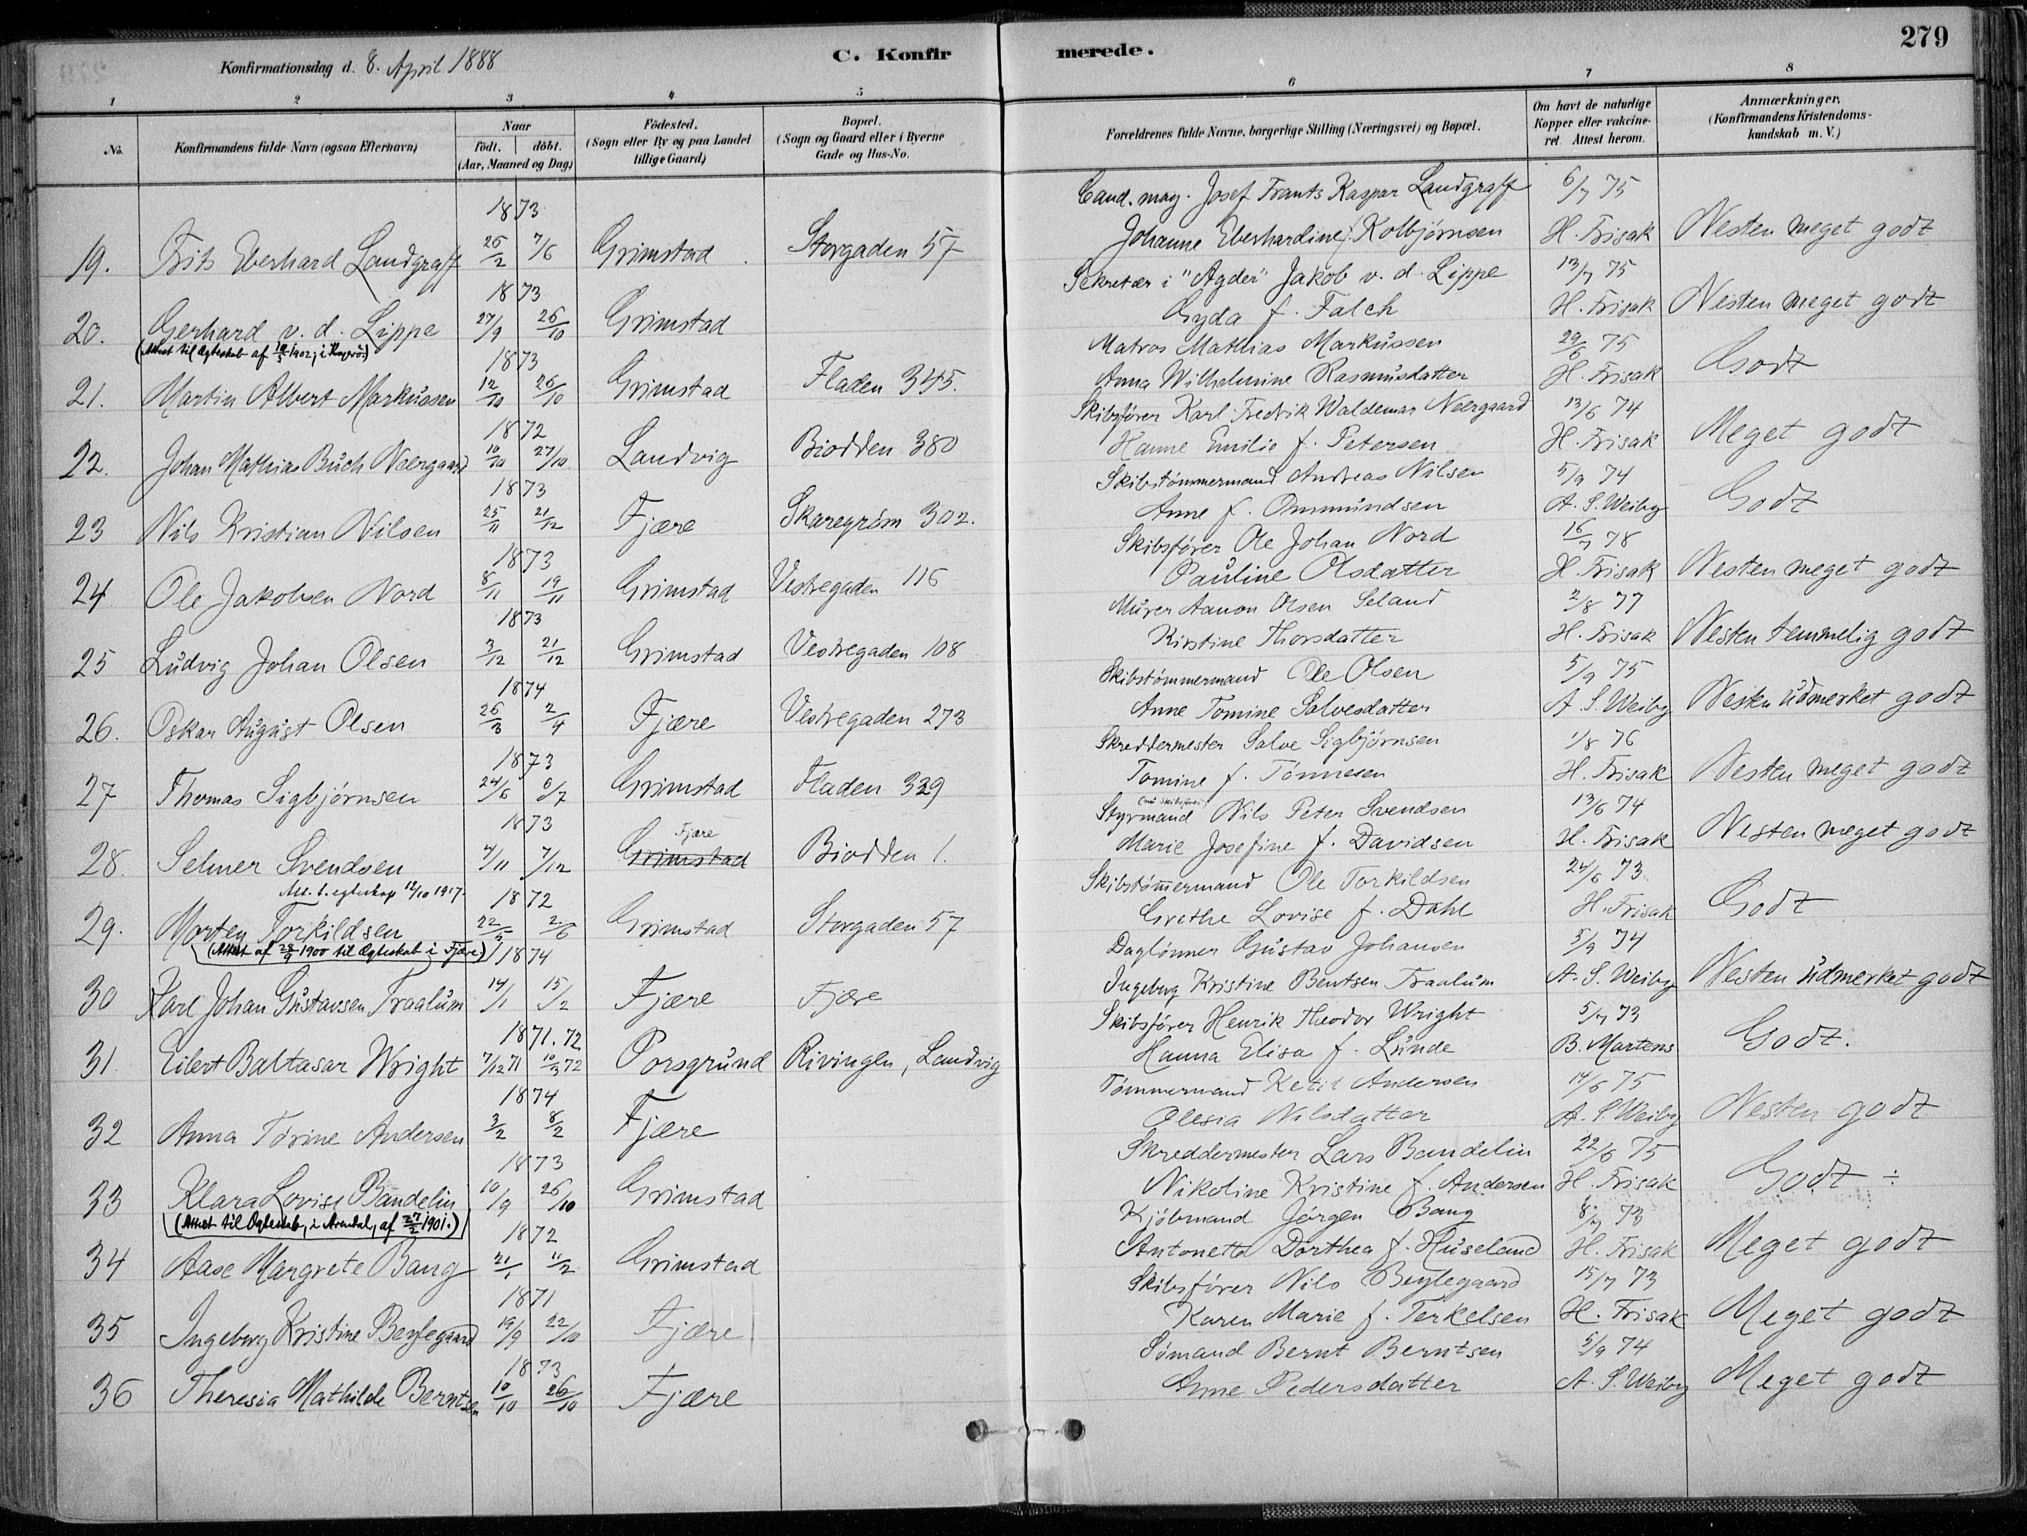 279
Konfirmationsdag d. 8. April 1888 C. Konfirmerede.
1 2 3 4 5 6 7 8
No. Konfirmandens fulde Navn (ogsaa Efternavn) Naar födt. döbt. (Aar, Maaned og Dag) Födested. (Sogn eller By og paa Landet tillige Gaard) Bopæl. (Sogn og Gaard eller i Byerne Gade og Hus-No. Forældrenes fulde Navne, borgerlige Stilling (Næringsvei) og Bopæl. Om havt de naturlige Kopper eller vakcineret. Attest herom. Anmærkninger. (Konfirmandens Kristendomskundskab m. V.)
1873 Cand. mag. Josef Frants Kaspar Landgraff 6/7 75
19. Frits Eberhard Landgraff 26/2 7/6 Grimstad Storgaden 57 Johanne Eberhardine f. Kolbjørnsen H. Frisak Nesten meget godt
1873 Sekretær i "Agder" Jakob v. d. Lippe 13/7 75
20. Gerhard v. d. Lippe 27/9 26/10 Grimstad Gyda f. Falch H. Frisak Nesten meget godt
(Attest til Ægteskab af 1902, i
1873 Matros Mathias Markussen 29/6 75
21. Martin Albert Markussen 12/10 26/10 Grimstad Fladen 345. Anna Wilhelmine Rasmusdatter H. Frisak Godt
1872 Skibsfører Karl Fredrik Waldemar Neergaard 13/6 74
22. Johan Mathias Buch Neergaard 10/10 27/10 Landvig Biodden 380 Hanne Emilie f. Petersen H. Frisak Meget godt
1873 Skibstømmermand Andreas Nilsen 5/9 74
23 Nils Kristian Nilsen 25/11 21/12 Fjære Skaregrøm 302. Anne f. Ommundsen A. S. Weiby Godt
1873 Skibsfører Ole Johan Nord 16/7 78
24 Ole Jakobsen Nord 8/11 19/11 Grimstad Vestregaden 116 Pauline Olsdatter H. Frisak Nesten meget godt
1873 Murer Aanon Olsen Seland 2/8 77
25 Ludvig Johan Olsen 3/12 21/12 Grimstad Vestregaden 108 Kirstine Thorsdatter H. Frisak Nesten temmelig godt
1874 Skibstømmermand Ole Olsen 5/9 75
26. Oskar August Olsen 26/3 2/4 Fjære Vestregaden 273 Anne Tomine Salvesdatter A. S. Weiby Nesten udmerket godt
1873 Skreddermester Salve Sigbjørnsen 1/8 76
27 Thomas Sigbjørnsen 24/6 6/7 Grimstad Fladen 329 Tomine f. Tønnesen H. Frisak Nesten meget godt
1873 Styrmand Nils Peter Svendsen 13/6 74
28. Selmer Svendsen 7/11 7/12 Fjære Grimstad Biodden 1. Marie Josefine f. Davidsen H. Frisak Nesten meget godt
Att. t. egteskap 12/10 1917.
1872 Skibstømmermand Ole Torkildsen 24/6 73.
29. Morten Torkildsen 22/5 2/6 Grimstad Storgaden 57 Grethe Lovise f. Dahl H. Frisak Godt
(Attest af 28/9 1900 til Ægteskab i Fjære)
1874 Daglønner Gustav Johansen 5/9 74
30 Karl Johan Gustavsen Fraalum 14/1 15/2 Fjære Fjære Ingeborg Kristine Bentsen Fraalum A. S. Weiby Nesten udmerket godt
1871. 72 Skibsfører Henrik Theodor Wright 5/7 73
31. Eilert Baltasar Wright 7/12 71 10/3 72 Porsgrund Rivingen, Landvig Hanna Elisa f. Lunde B. Martens Godt.
1874 Tømmermand Ketil Andersen 14/6 75
32 Anna Tørine Andersen 3/2 8/2 Fjære Olesia Nilsdatter A. S. Weiby Nesten godt
1873 Skreddermester Lars Bandelin 22/6 75
33 Klara Lovise Bandelin 10/9 26/10 Grimstad Nikoline Kristine f. Andersen H. Frisak Godt ÷
(Attest til Ægteskab, i Arendal, af 27/2 1901.)
1872 Kjøbmand Jørgen Bang 8/7 73
34 Aase Margrete Bang 21/1 11/2 Grimstad Antonette Dorthea f. Huseland H. Frisak Meget godt
1871 Skibsfører Nils Beylegaard 15/7 73
35 Ingeborg Kristine Beylegaard 19/9 22/10 Fjære Karen Marie f. Terkelsen H. Frisak Meget godt
1873 Sømand Bernt Berntsen 5/9 74
36 Theresia Mathilde Berntsen 10/10 26/10 Fjære Anne Pedersdatter A. S. Weiby Meget godt